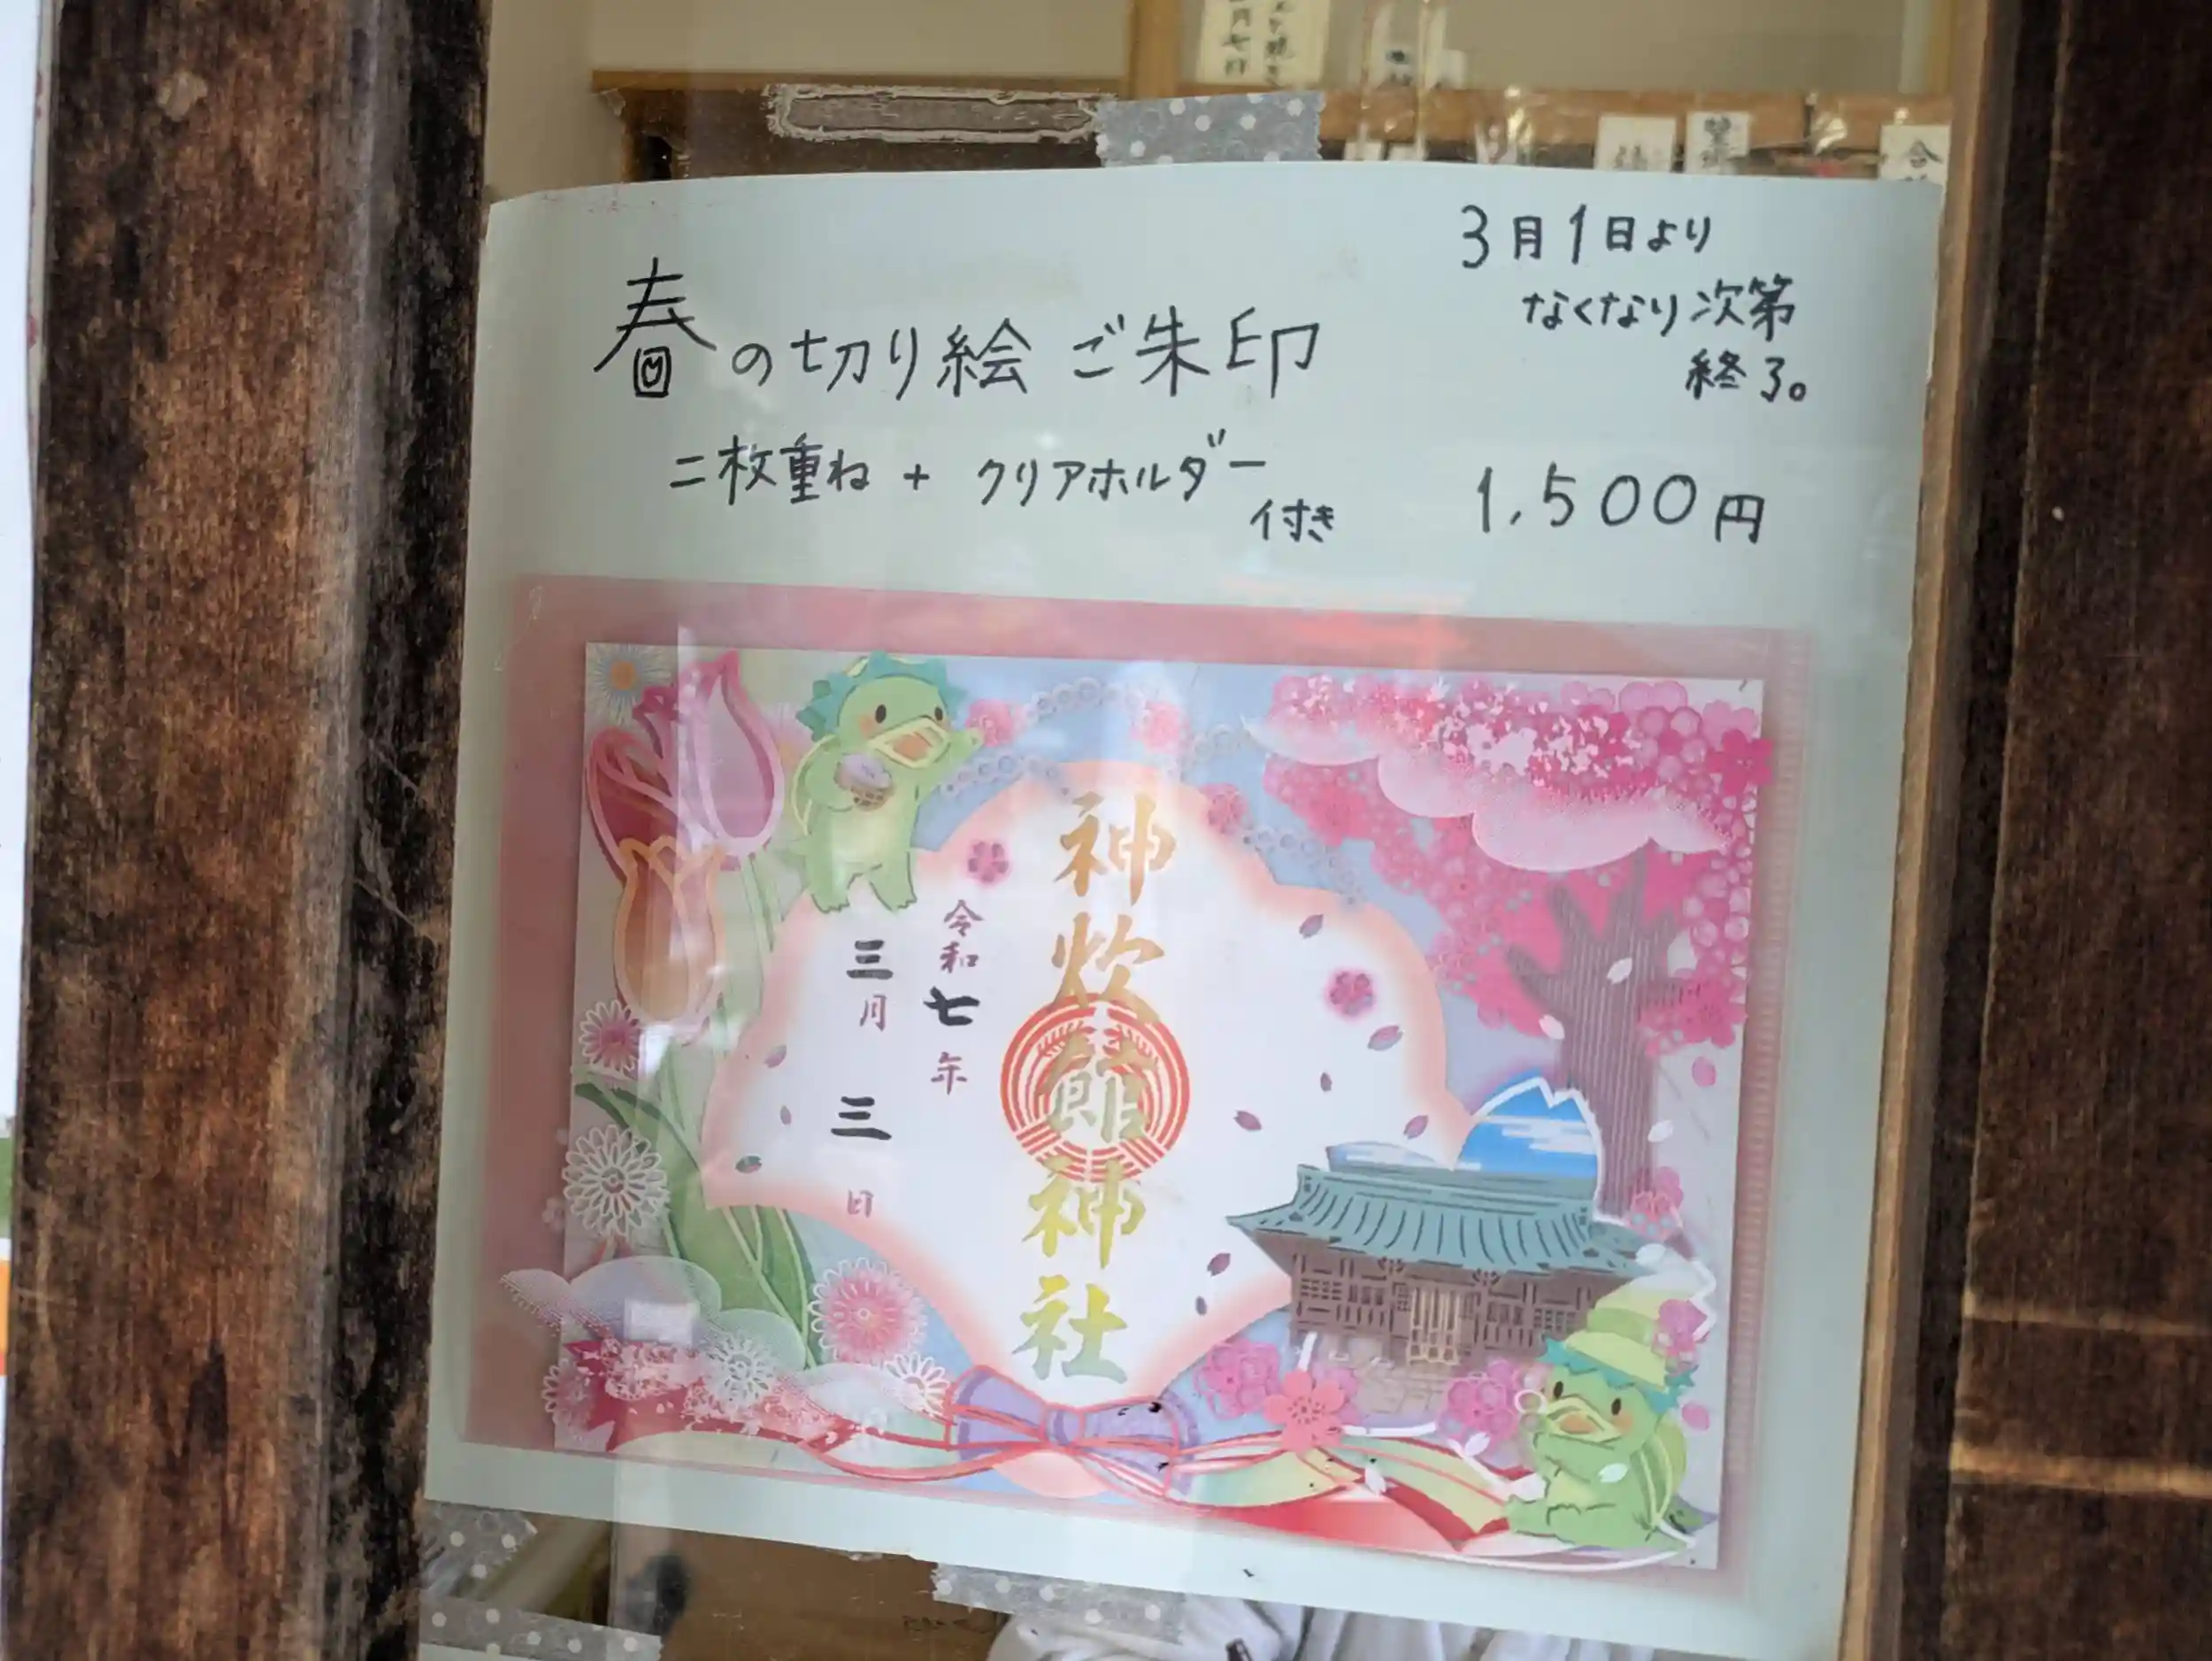 春の切り絵ご朱印
3月1日より
なくなり次第
終了。
二枚重ね + クリアホルダー
付き
1,500円
神炊館神社
令和七年
三月三日